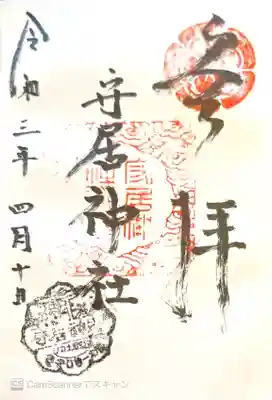 奉拝
安居神社
令和三年 四月十日
CS CamScannerでスキャン